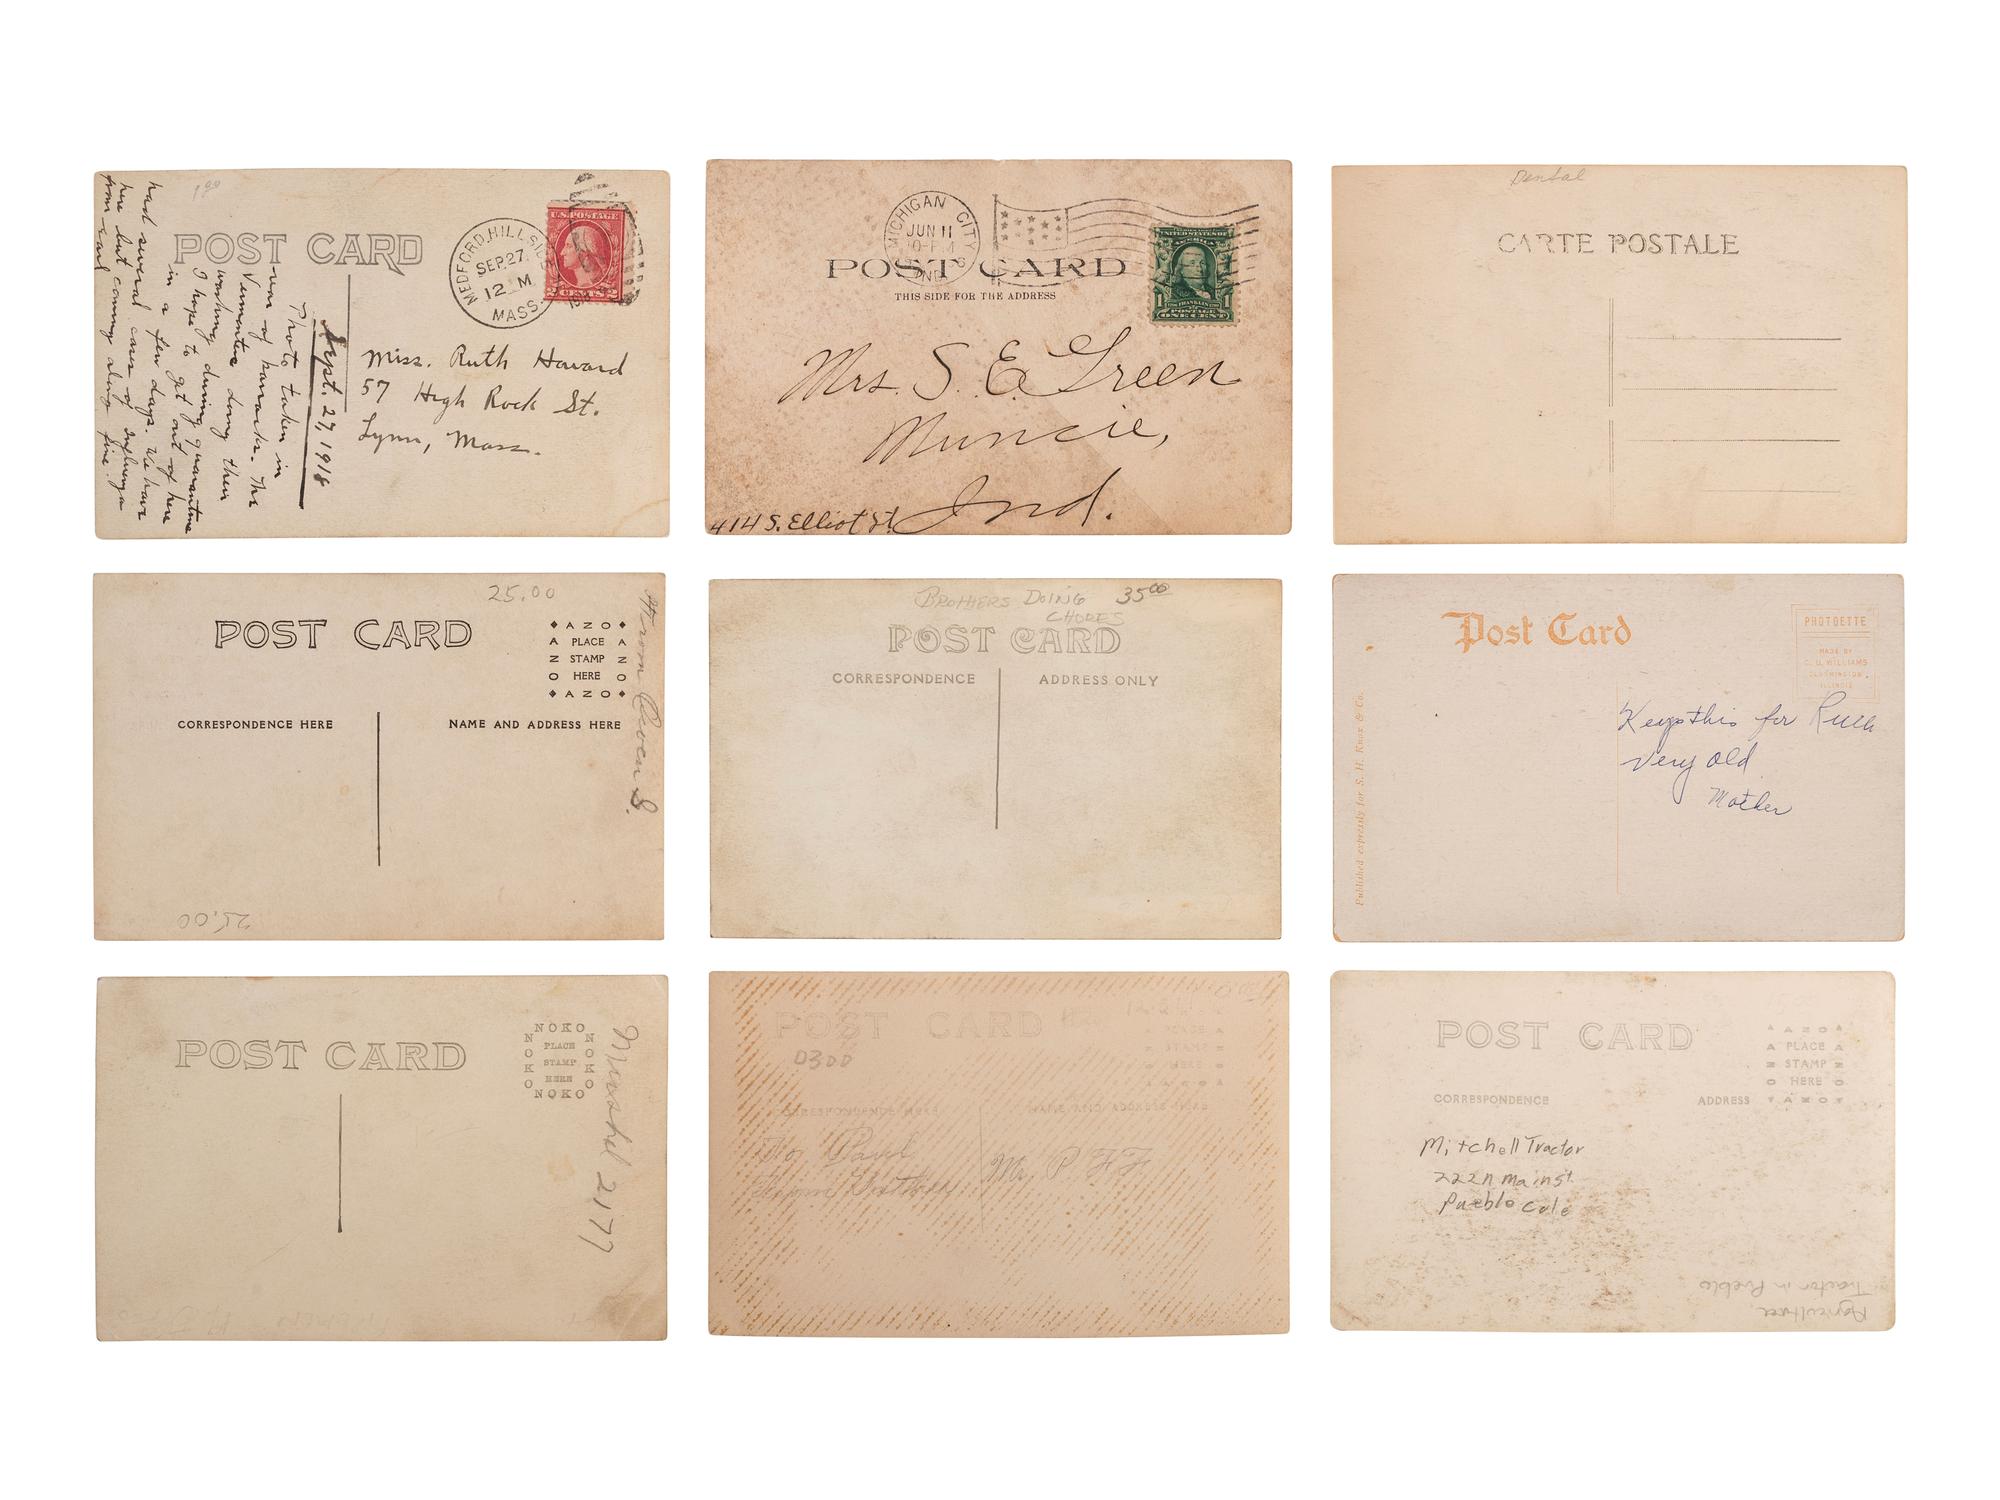 1.00
POST CARD
MEDFORD HILLSIDE
SEP 27
12 M
MASS.
U.S. POSTAGE
2 CENTS 2
Sept. 27, 1918
Photo taken in
rear of barracks. The
Vermonters doing their
washing during quarantine
I hope to get out of here
in a few days. We have
had several cases of influenza
here but coming along fine.
Miss. Ruth Howard
57 High Rock St.
Lynn, Mass.
MICHIGAN CITY
JUN 11
IND
POST CARD
THIS SIDE FOR THE ADDRESS
UNITED STATES OF
AMERICA
FRANKLIN
1 POSTAGE 1
ONE CENT
Mrs. S. E. Green
Muncie,
Ind.
414 S. Elliot St.
Dental
CARTE POSTALE
25.00
POST CARD
AZO
PLACE
STAMP
HERE
AZO
CORRESPONDENCE HERE
NAME AND ADDRESS HERE
From Owen S.
25.00
BROTHERS DOING
CHORES
35.00
POST CARD
CORRESPONDENCE
ADDRESS ONLY
Post Card
PHOTOETTE
MADE BY
C. U. WILLIAMS
BLOOMINGTON
ILLINOIS
Published expressly for S. H. Knox & Co.
Keep this for Ruth
very old
Mother
POST CARD
NOKO
PLACE
STAMP
HERE
NOKO
2177
POST CARD
D300
PLACE
STAMP
HERE
AZO
CORRESPONDENCE HERE
NAME AND ADDRESS HERE
To Paul
From
Mr. P
POST CARD
AZO
PLACE
STAMP
HERE
AZO
CORRESPONDENCE
ADDRESS
Mitchell Tractor
222 n main st
Pueblo Colo
Agriculture
Tractor in Pueblo